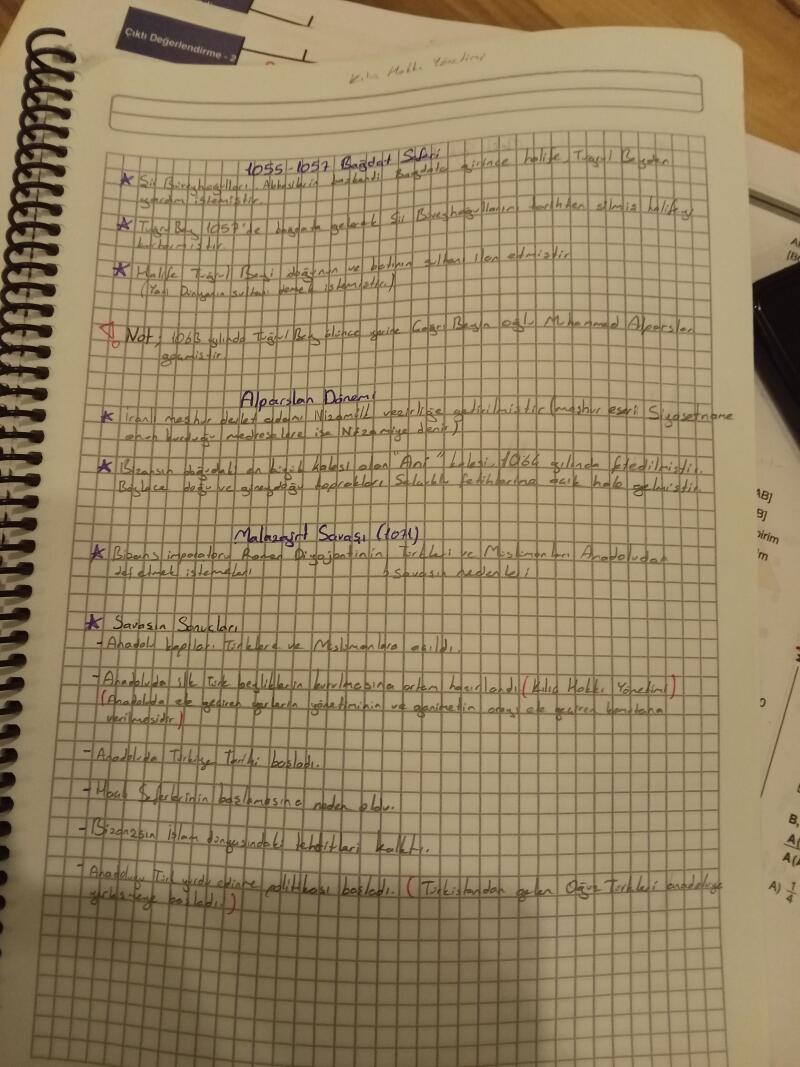 Çıktı Değerlendirme - 2
Kılıç Hakkı Yönetimi
1055-1057 Bağdat Seferi
★ Şii Büveyhoğulları Abbasilerin başkenti Bağdata girince halife Tuğrul Beyden
yardım istemiştir.
★ Tuğrul Bey 1057'de bağdata gelerek Şii Büveyhoğullarını tarihten silmiş halifeyi
kurtarmıştır.
★ Halife Tuğrul Beyi doğunun ve batının sultanı ilan etmiştir
(Yani Dünyanın sultanı demek istemiştir)
Not, 1063 yılında Tuğrul Bey ölünce yerine Çağrı Beyin oğlu Muhammed Alparslan
geçmiştir
Alparslan Dönemi
★ İranlı meşhur devlet adamı Nizamülk vezirliğe getirilmiştir (meşhur eseri Siyasetname
kurduğu medreselere ise Nizamiye denir)
★ Bizansın doğudaki en büyük kalesi olan "Ani" kalesi 1064 yılında fethedilmiştir.
Böylece doğu ve güneydoğu toprakları Selçuklu fetihlerine açık hale gelmiştir
Malazgirt Savaşı (1071)
★ Bizans imparatoru Roman Diyojentinin Türkleri ve Müslümanları Anadoludan
def etmek istemeleri savaşın nedenleri
★ Savaşın Sonuçları
- Anadolu kapıları Türklere ve Müslümanlara açıldı.
- Anadoluda ilk Türk beyliklerin kurulmasına ortam hazırlandı (Kılıç Hakkı Yönetimi)
(Anadoluda ele geçiren yerlerin yönetiminin ve ganimetin orayı ele geçiren komutana
verilmesidir)
- Anadoluda Türkiye Tarihi başladı.
- Haçlı Seferlerinin başlamasına neden oldu.
- Bizansın İslam dünyasındaki tehditleri kalktı.
- Anadoluyu Türk yurdu edinme politikası başladı. (Türkistandan gelen Oğuz Türkleri anadoluya
yerleşmeye başladı)
AB]
B]
birim
B,
A) 1/4